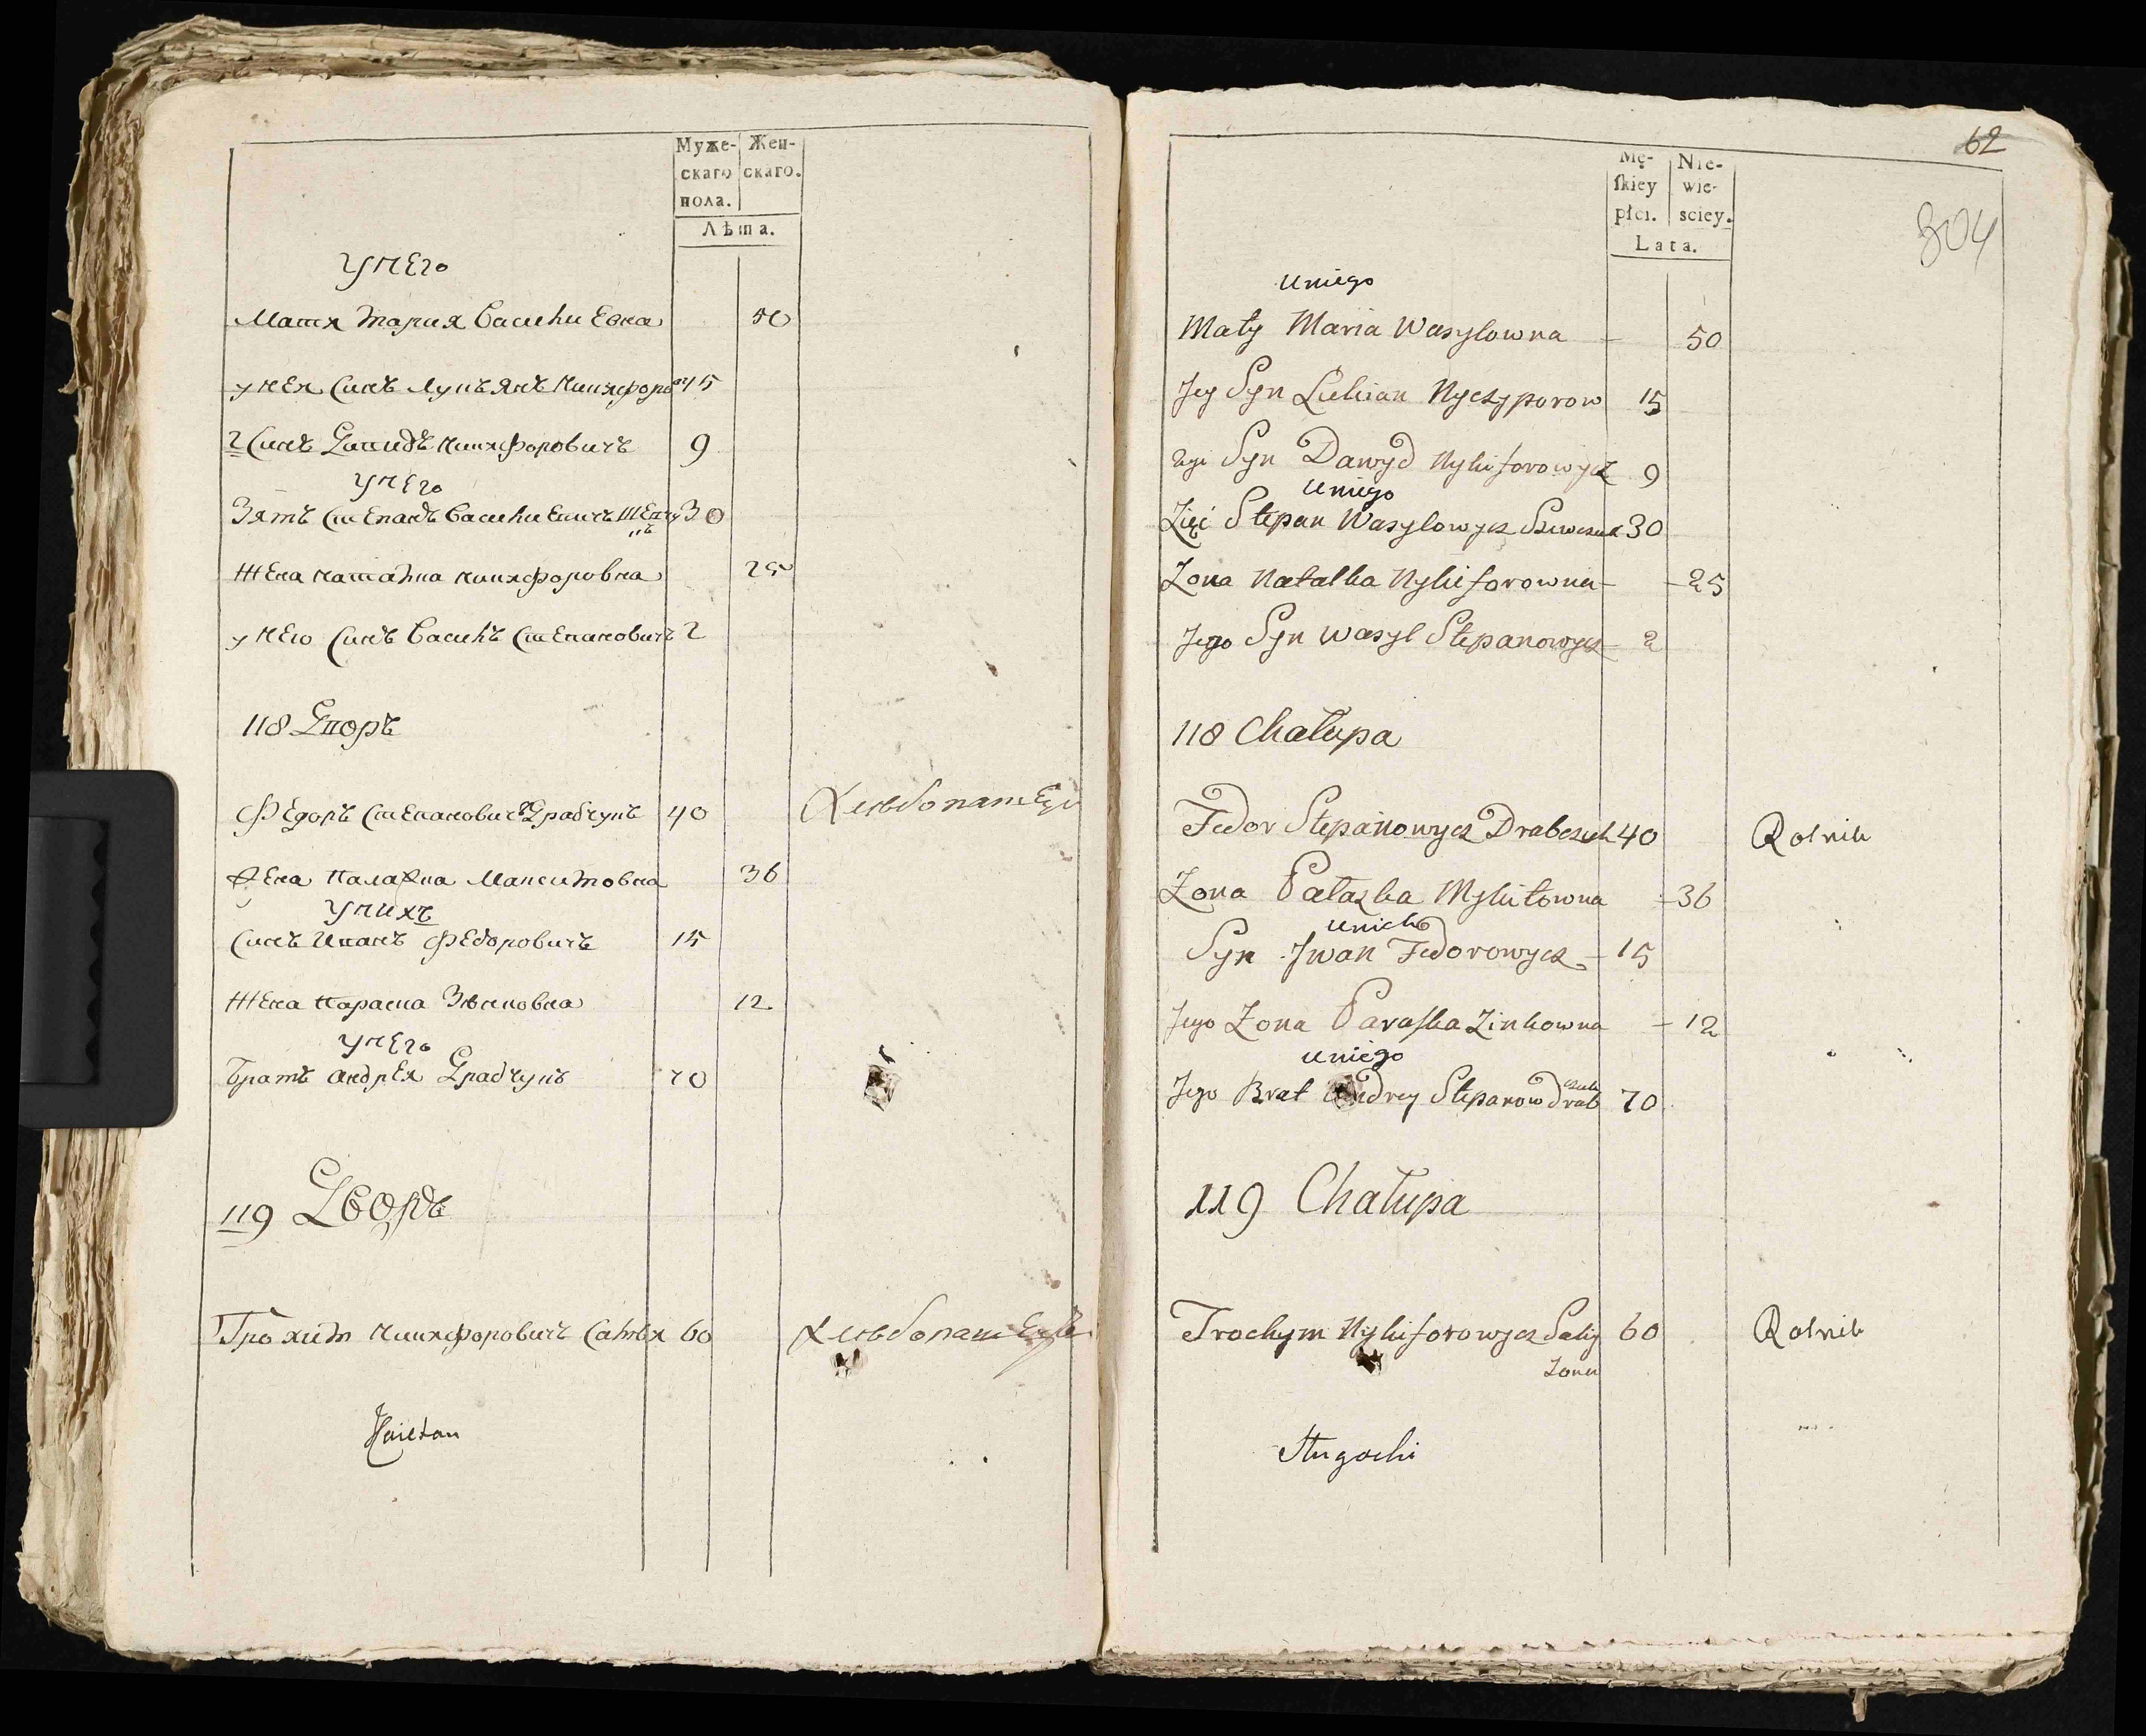 Муже-
скаго
пола.
Жен-
скаго.
Лѣта.
У него
Матя Мария Василиевна 50
у нея Синъ Лукъянъ Никифоров 15
2 Синъ Давидъ Никифоровичъ 9
У него
Зятъ Степанъ Василиевичъ 30
Жена Наталка Никифоровна 25
у него Синъ Василъ Степановичъ 2
118 Дворъ
Федоръ Степановичъ Драбчукъ 40
Жена Палажка 36
У нихъ
Синъ Иванъ Федоровичъ 15
Жена Параска Зѣнковна 12
У него
Братъ Андрея Драбчукъ 70
119 Дворъ
Трохим Никифоровичъ 60
62
804
Mę-
ſkiey
płci.
Nie-
wie-
sciey.
Lata.
u niego
Maty Maria Wasylowna – 50
Jey Syn Lukian Nyczyporow 15
Syn Dawyd Nykiforowycz 9
u niego
Zięć Stepan Wasylowycz Szewczuk 30
Zona Natalka Nykiforowna – 25
Jego Syn Wasyl Stepanowycz – 2
118 Chałupa
Fedor Stepanowycz Drabczuk 40 Rolnik
Zona Pałazka Mykitowna – 36
u nich
Syn Jwan Fedorowycz – 15
Jego Zona Paraſka Zinkowna – 12
u niego
Jego Brat Andrey Stepanow Drabczuk 70
119 Chałupa
Trochym Nykiforowycz Saliy 60 Rolnik
Zona